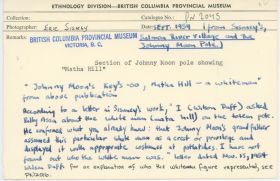 ETHNOLOGY DIVISION—BRITISH COLUMBIA PROVINCIAL MUSEUM
Collection Catalogue No. PN
Photographer: Eric Sismey SEPT. 1954 (from Sismey's,
BRITISH COLUMBIA PROVINCIAL MUSEUM Salmon River Village and the
VICTORIA, B.C. Johnny Moon Pole)
Section of Johnny Moon pole showing
"Matha Hill"
"Johnny Moon's Key's-oo, Matha Hill - a whiteman"
from above publication
According to a letter in Sismey's work, I (Wilson Duff) asked
Billy Assu about the white man (mata hall) on the totem pole.
He confirmed what you already know: that Johnny Moon's grandfather
assumed this particular white man as a crest or privilege and
displayed it with appropriate at potlatches. I have not
found out who the white man was. letter dated Nov. 15, 1954
Wilson Duff. For an of who the whiteman figure represented, see